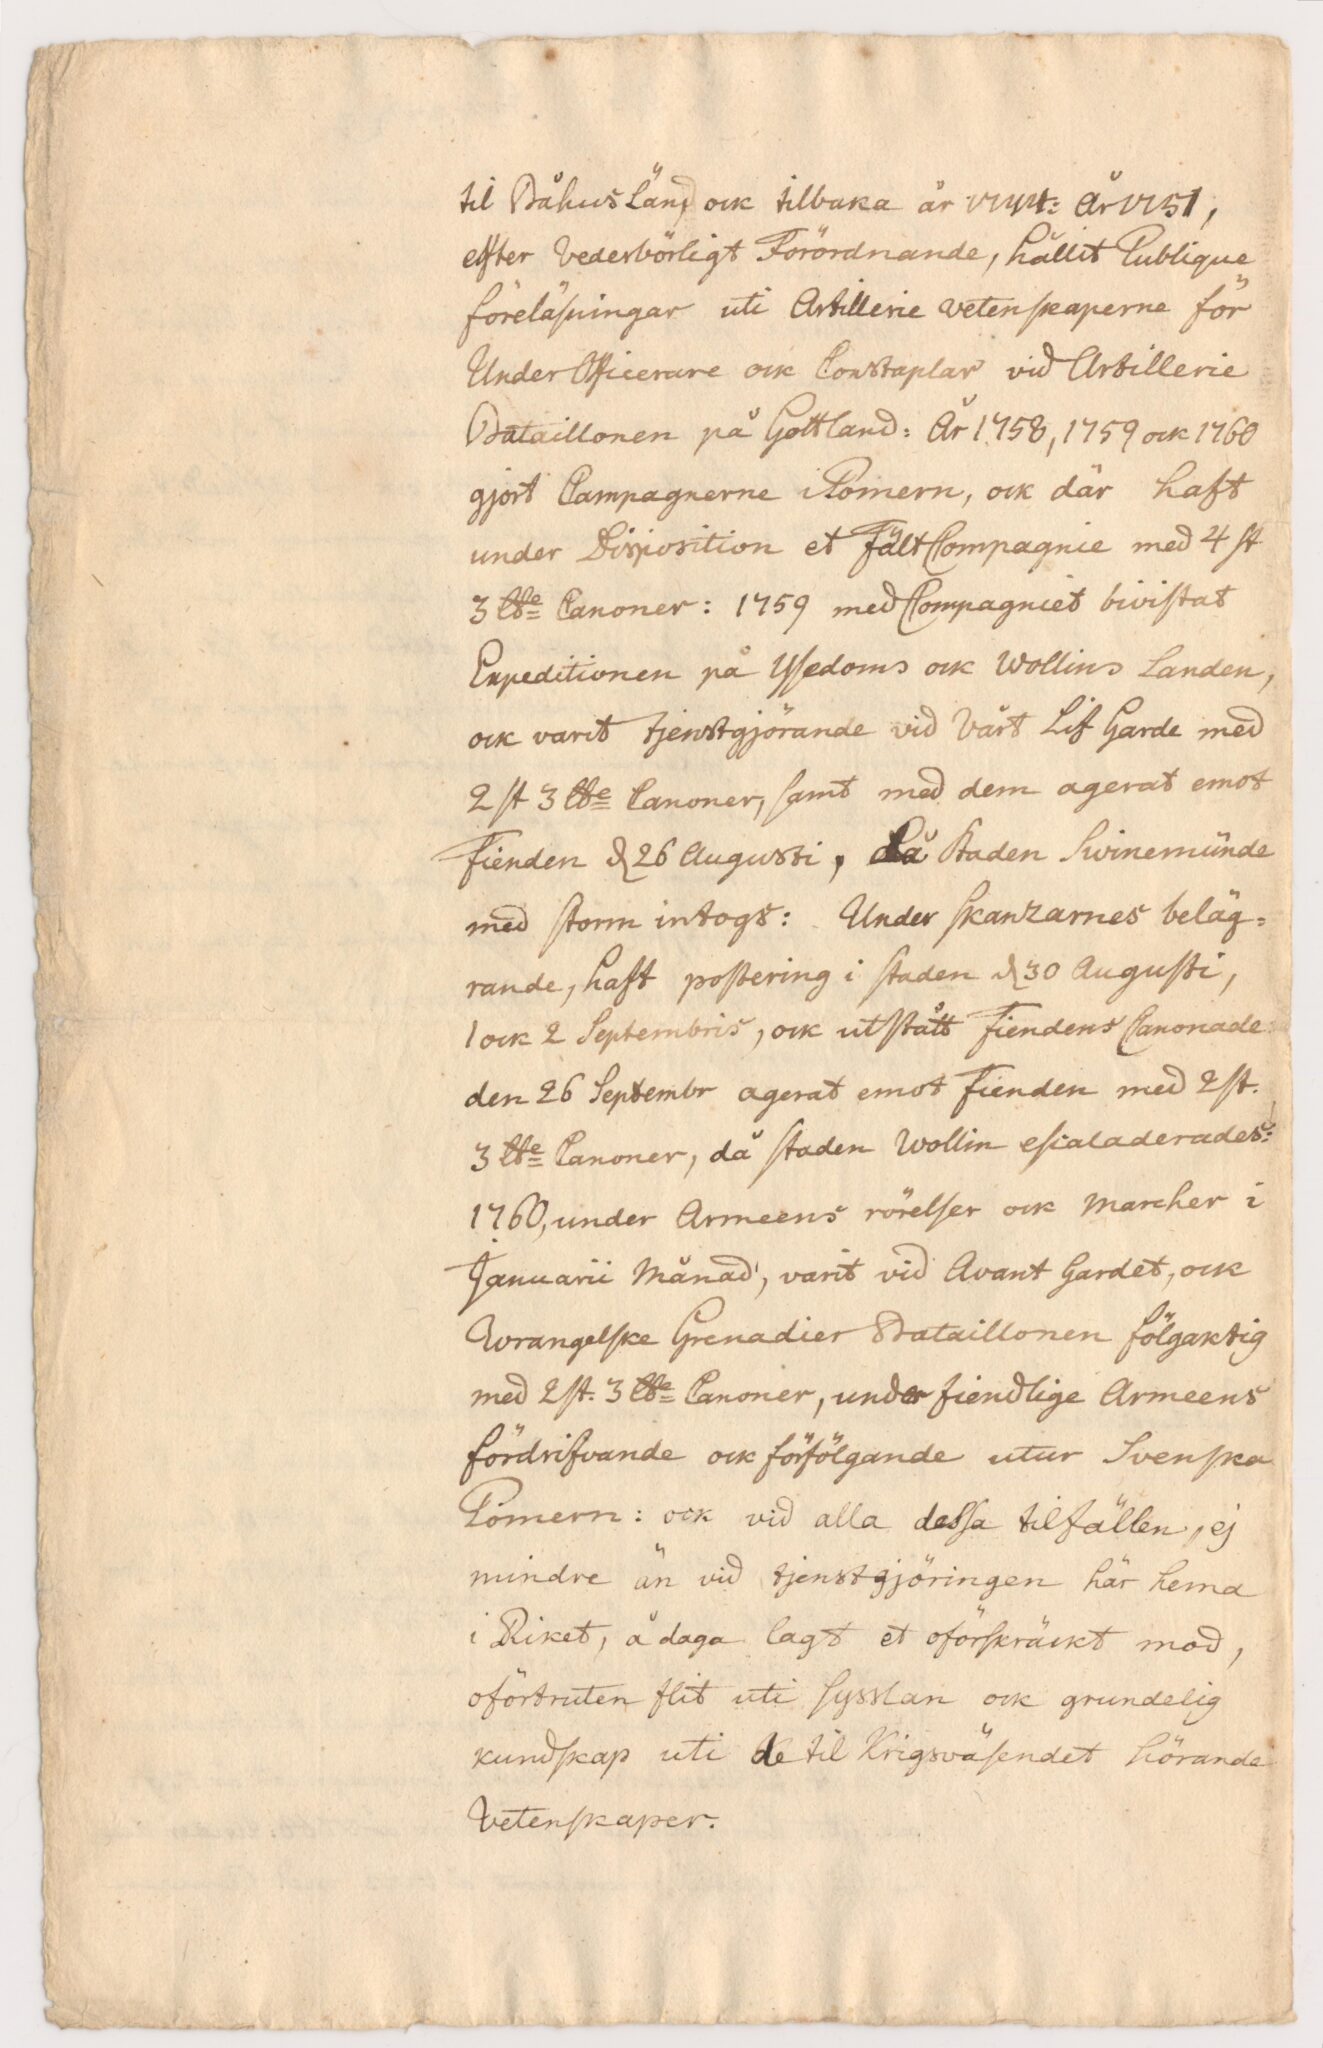 til Båhus Länd ock tilbaka år 1744: År 1751,
efter Vederbörligt Förördnande, hållit Publique
föreläsningar uti Artillerie vetenskaperne för
Under Officerare ock Constaplar vid Artillerie
Bataillonen på Gottland: År 1758, 1759 ock 1760
gjort Campagnerne i Pomern, ock där haft
under Disposition et Fält Compagnie med 4 st
3 ℔e Canoner: 1759 med Compagniet bivistat
Expeditionen på Ysedoms ock Wollins Landen,
ock varit tjenstgjörande vid Vårt Lif Garde med
2 st 3 ℔e Canoner, samt med dem agerat emot
Fienden d 26 Augusti, då Staden Swinemünde
med storm intogs: Under skanzarnes beläg=
rande, haft postering i staden d 30 Augusti,
1 ock 2 Septembris, ock utstått Fiendens Canonade
den 26 Septembr agerat emot Fienden med 2 st.
3 ℔e Canoner, då staden Wollin escaladerades:
1760, under Armeens rörelser ock Marcher i
Januarii Månad, varit vid Avant Gardet, ock
Wrangelske Grenadier Bataillonen fölgaktig
med 2 st. 3 ℔e Canoner, under fiendlige Armeens
fördrifvande ock förfölgande utur Svenska
Pomern: ock vid alla dessa tilfällen, ej
mindre än vid tjenstgjöringen här hema
i Riket, å daga lagt et oförskräckt mod,
oförtruten flit uti sysslan ock grundelig
kundskap uti de til Krigsväsendet hörande
Vetenskaper.